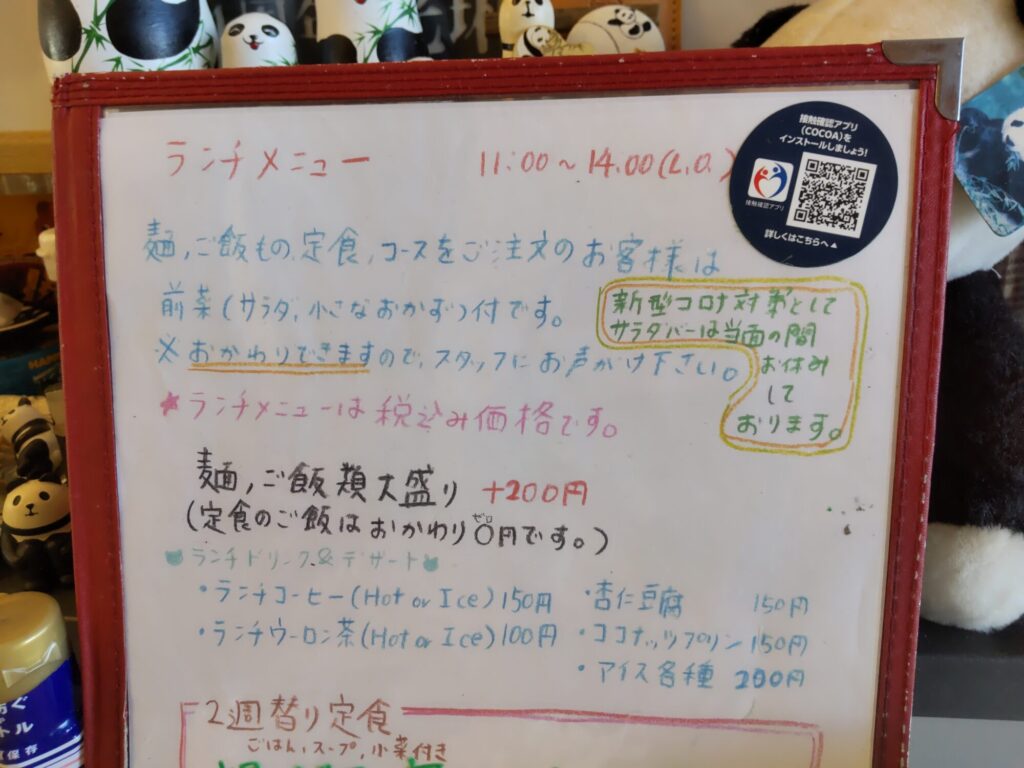 ランチメニュー 11:00～14:00(L.O.)
接触確認アプリ
(COCOA)を
インストールしましょう!
接触確認アプリ
詳しくはこちらへ▲
麺,ご飯もの,定食,コースをご注文のお客様は
前菜(サラダ,小さなおかず)付です。
※おかわりできますので,スタッフにお声がけ下さい。
新型コロナ対策として
サラダバーは当面の間
お休み
して
おります。
★ランチメニューは税込み価格です。
麺,ご飯類大盛り +200円
(定食のご飯はおかわり〇円です。)
ゼロ
ランチドリンク&デザート
・ランチコーヒー(Hot or Ice)150円
・ランチウーロン茶(Hot or Ice)100円
・杏仁豆腐 150円
・ココナッツプリン 150円
・アイス各種 200円
2週替り定食
ごはん,スープ,小菜付き
トル
保存